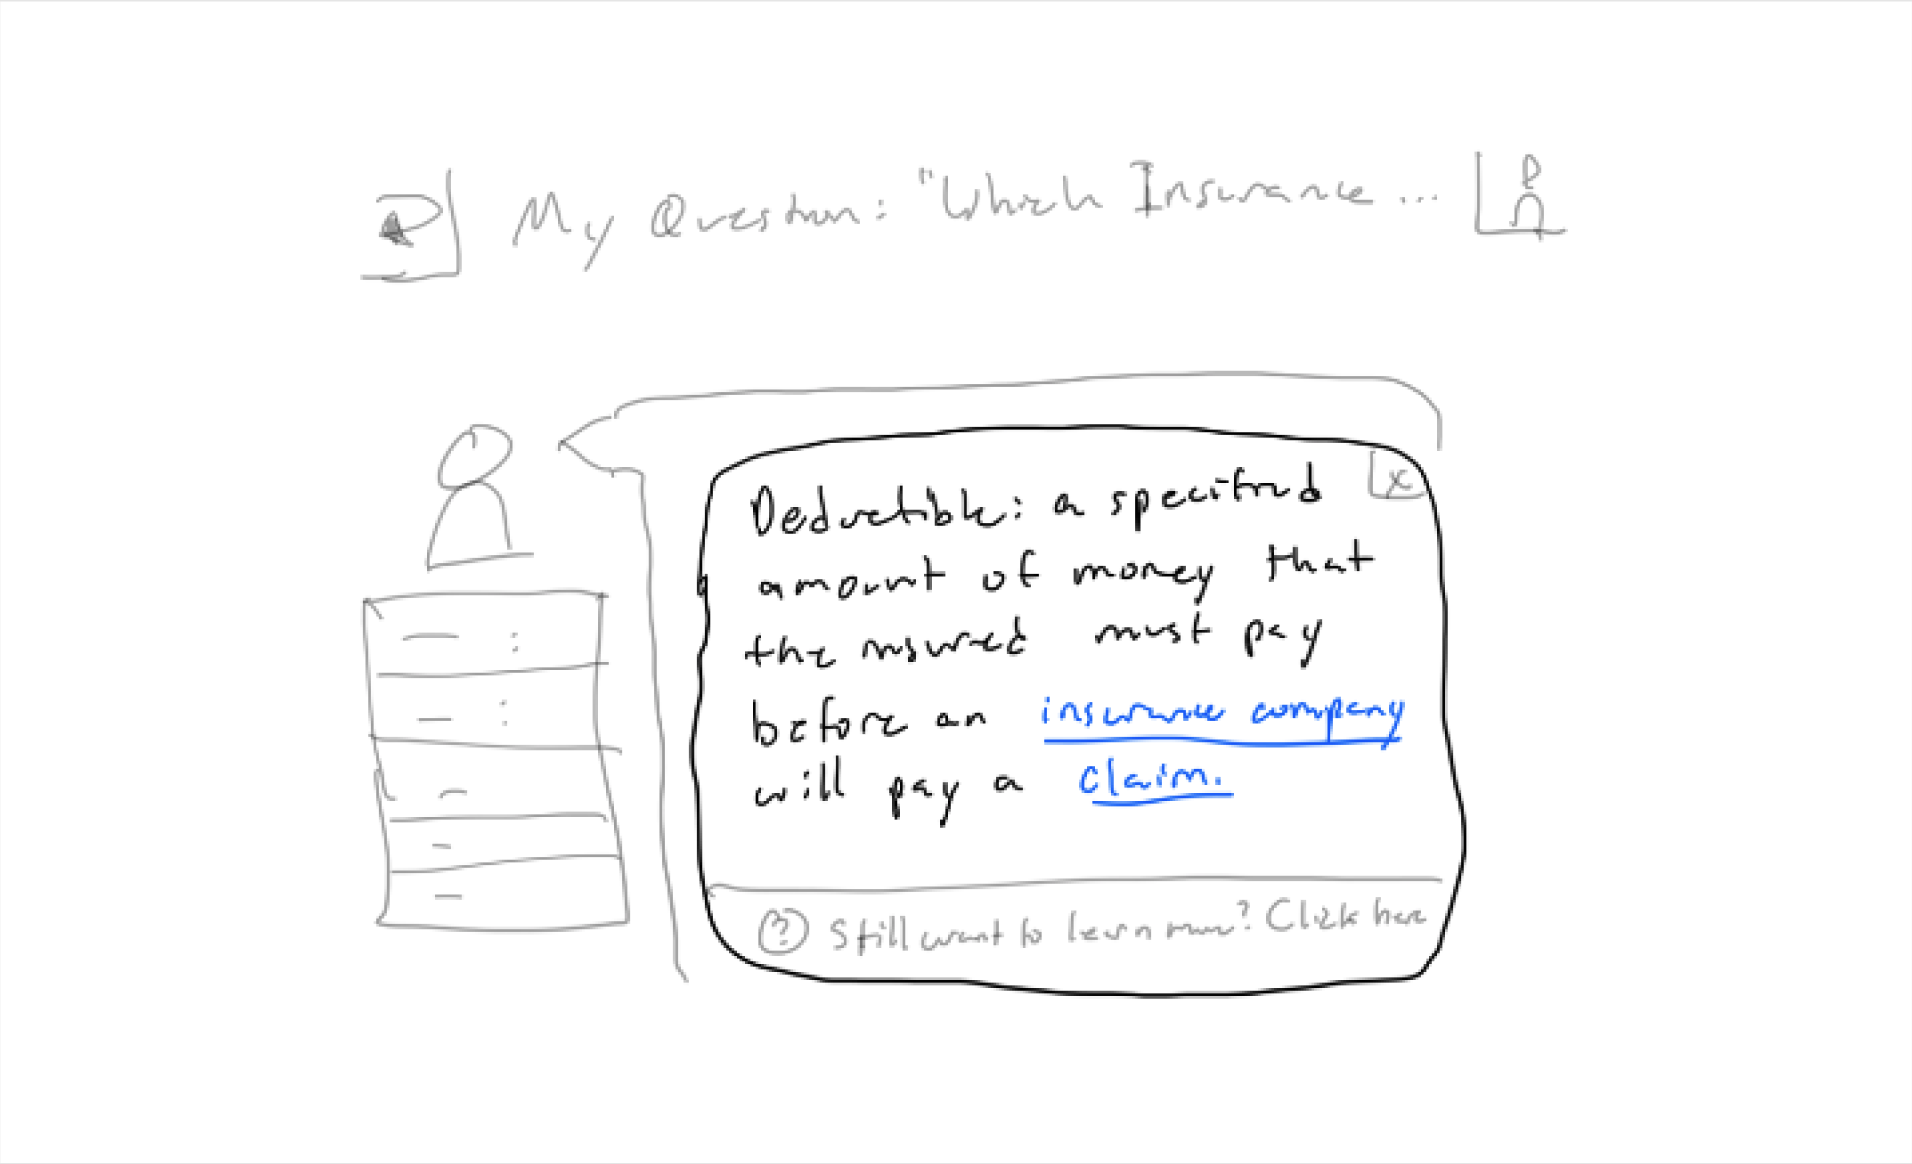 My Question: "Which Insurance ...
x
Deductible: a specified
amount of money that
the insured must pay
before an insurance company
will pay a claim.
? Still want to learn more? Click here